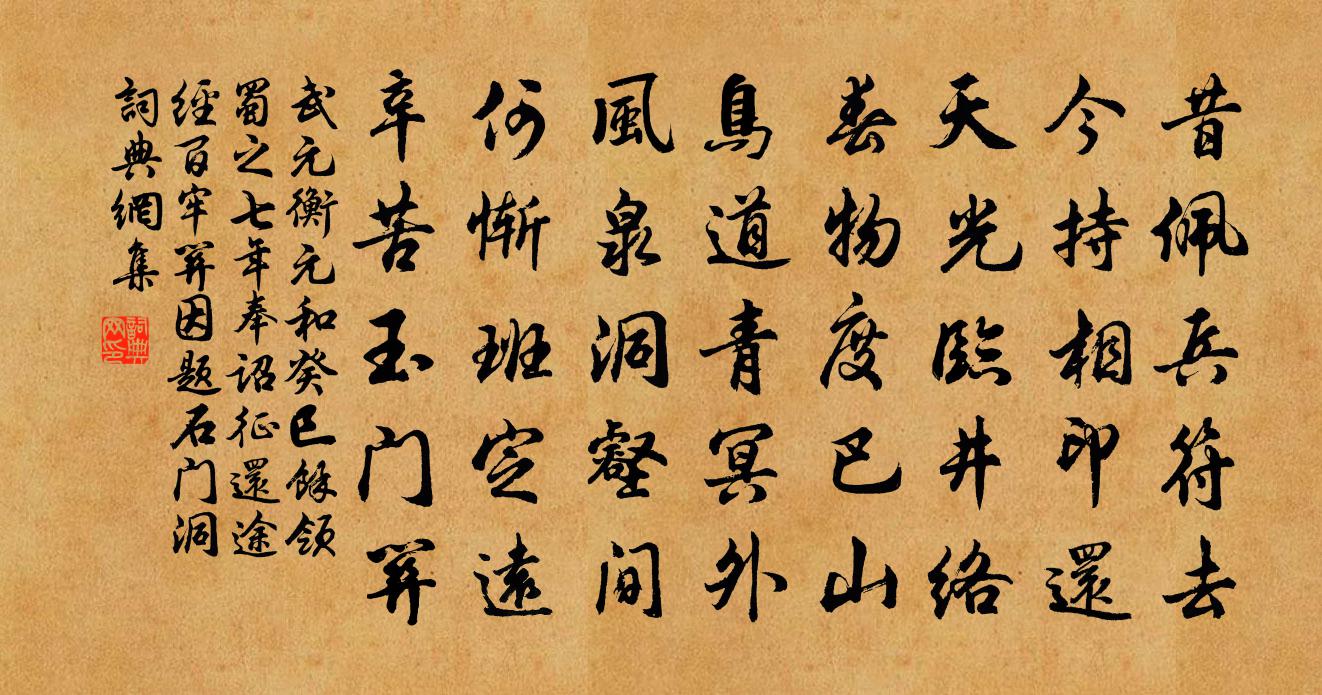 昔佩兵符去
今持相印還
天光臨井絡
春物度巴山
鳥道青冥外
風泉洞壑間
何慚班定遠
辛苦玉门關
武元衡元和癸巳餘領
蜀之七年奉詔征還途
經百牢關因题石门洞
詞典網集
詞典网印